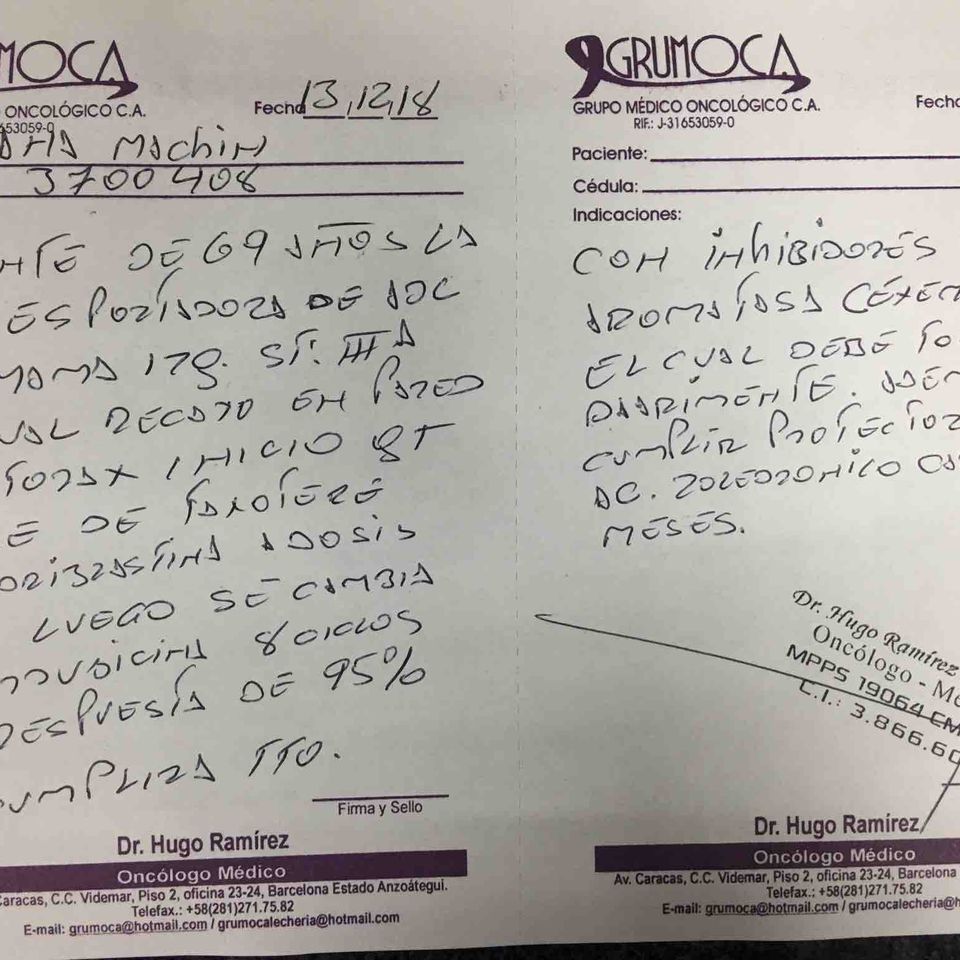 MOCA
ONCOLÓGICO C.A.
653059-0
Fecha 13,12,18
MACHIN
3700408
NTE DE 69 AÑOS LA
ES PORTADORA DE ADC
MAMA IZQ. ST: IIIA
UAL RECAYO EN PARED
TORAX INICIO QT
E DE TAXOTERE
A DOSIS
LUEGO SE CAMBIA
8 CICLOS
RESPUESTA DE 95%
CUMPLIRA TTO.
Firma y Sello
Dr. Hugo Ramírez
Oncólogo Médico
Caracas, C.C. Videmar, Piso 2, oficina 23-24, Barcelona Estado Anzoátegui.
Telefax.: +58(281)271.75.82
E-mail: grumoca@hotmail.com / grumocalecheria@hotmail.com
GRUMOCA
GRUPO MÉDICO ONCOLÓGICO C.A.
RIF.: J-31653059-0
Fecha
Paciente:
Cédula:
Indicaciones:
CON INHIBIDORES
AROMATASA (EXEM
EL CUAL DEBE TO
DIARIMENTE. ADEM
CUMPLIR PROTECTOR
AC. ZOLEDRONICO CA
MESES.
Dr. Hugo Ramírez
Oncólogo - Mé
MPPS 19064 CM
C.I.: 3.866.60
Dr. Hugo Ramírez
Oncólogo Médico
Av. Caracas, C.C. Videmar, Piso 2, oficina 23-24, Barcelona
Telefax.: +58(281)271.75.82
E-mail: grumoca@hotmail.com / grumocalecheria@h